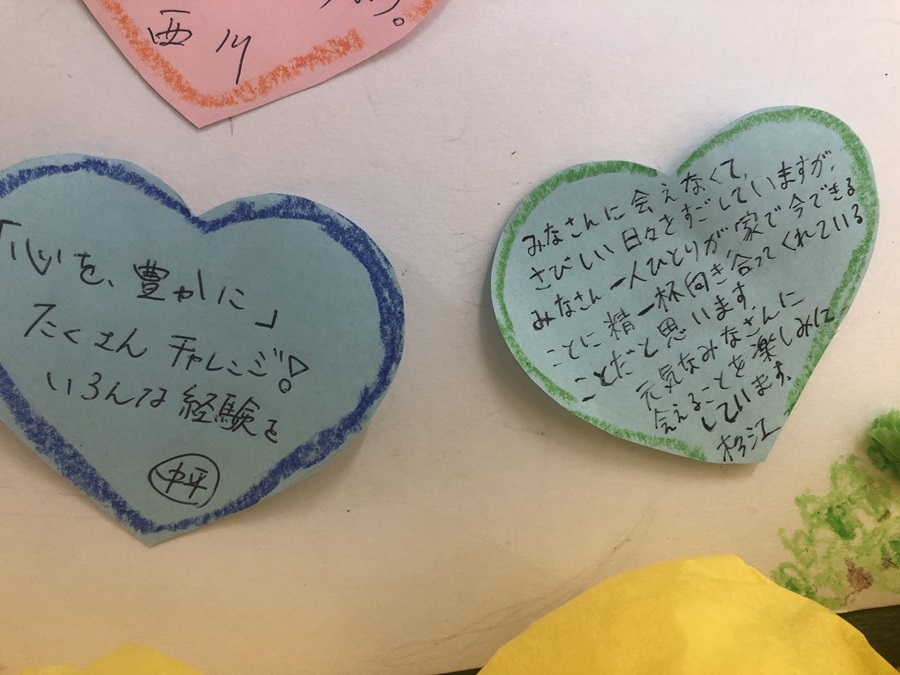 西川
「心を、豊かに」
たくさん チャレンジ!
いろんな経験を
中平
みなさんに会えなくて、
さびしい日々をすごしていますが、
みなさん一人ひとりが、家で今できる
ことに精一杯向き合ってくれている
ことだと思います。
元気なみなさんに
会えることを楽しみに
しています。
杉江